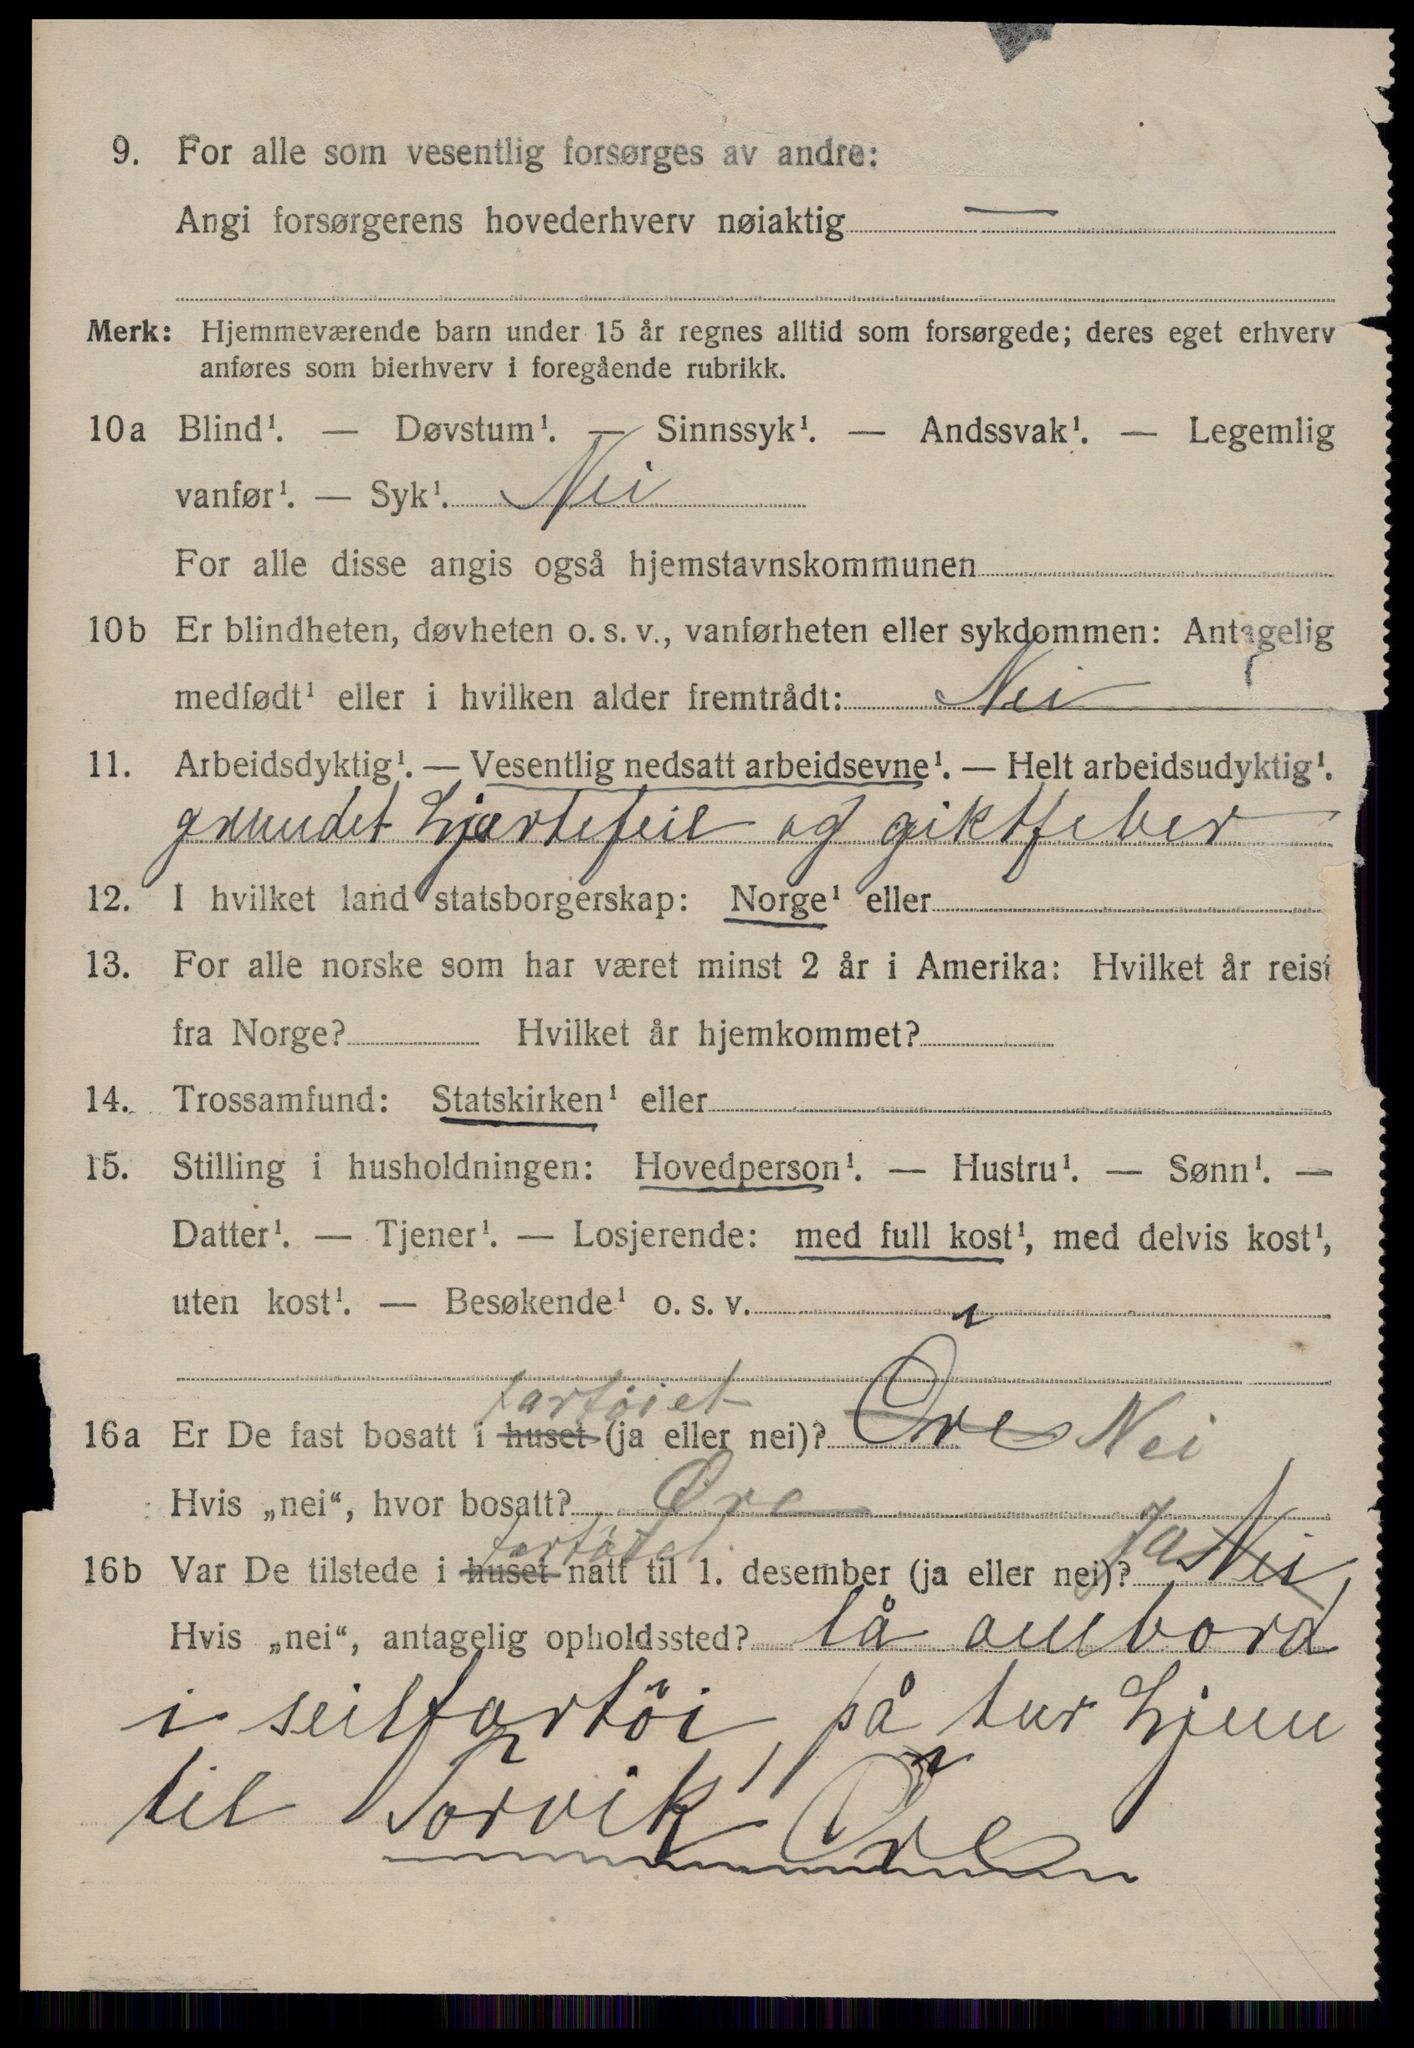 9. For alle som vesentlig forsørges av andre:
Angi forsørgerens hovederhverv nøiaktig —
Merk: Hjemmeværende barn under 15 år regnes alltid som forsørgede; deres eget erhverv
anføres som bierhverv i foregående rubrikk.
10a Blind¹. — Døvstum¹. — Sinnssyk¹. — Andssvak¹. — Legemlig
vanfør¹. — Syk¹. Nei
For alle disse angis også hjemstavnskommunen
10b Er blindheten, døvheten o. s. v., vanførheten eller sykdommen: Antagelig
medfødt¹ eller i hvilken alder fremtrådt: Nei
11. Arbeidsdyktig¹. — Vesentlig nedsatt arbeidsevne¹. — Helt arbeidsudyktig¹.
grundet hjertefeil og giktfeber
12. I hvilket land statsborgerskap: Norge¹ eller
13. For alle norske som har været minst 2 år i Amerika: Hvilket år reist
fra Norge? Hvilket år hjemkommet?
14. Trossamfund: Statskirken¹ eller
15. Stilling i husholdningen: Hovedperson¹. — Hustru¹. — Sønn¹. —
Datter¹. — Tjener¹. — Losjerende: med full kost¹, med delvis kost¹,
uten kost¹. — Besøkende¹ o. s. v.
fartöiet
16a Er De fast bosatt i huset (ja eller nei)? Öre Nei
Hvis „nei“, hvor bosatt? Øre
fartöiet
16b Var De tilstede i huset natt til 1. desember (ja eller nei)? Ja Nei
Hvis „nei“, antagelig opholdssted? lå ombord
i seilfartöi, på tur hjem
til Torvik, Öre